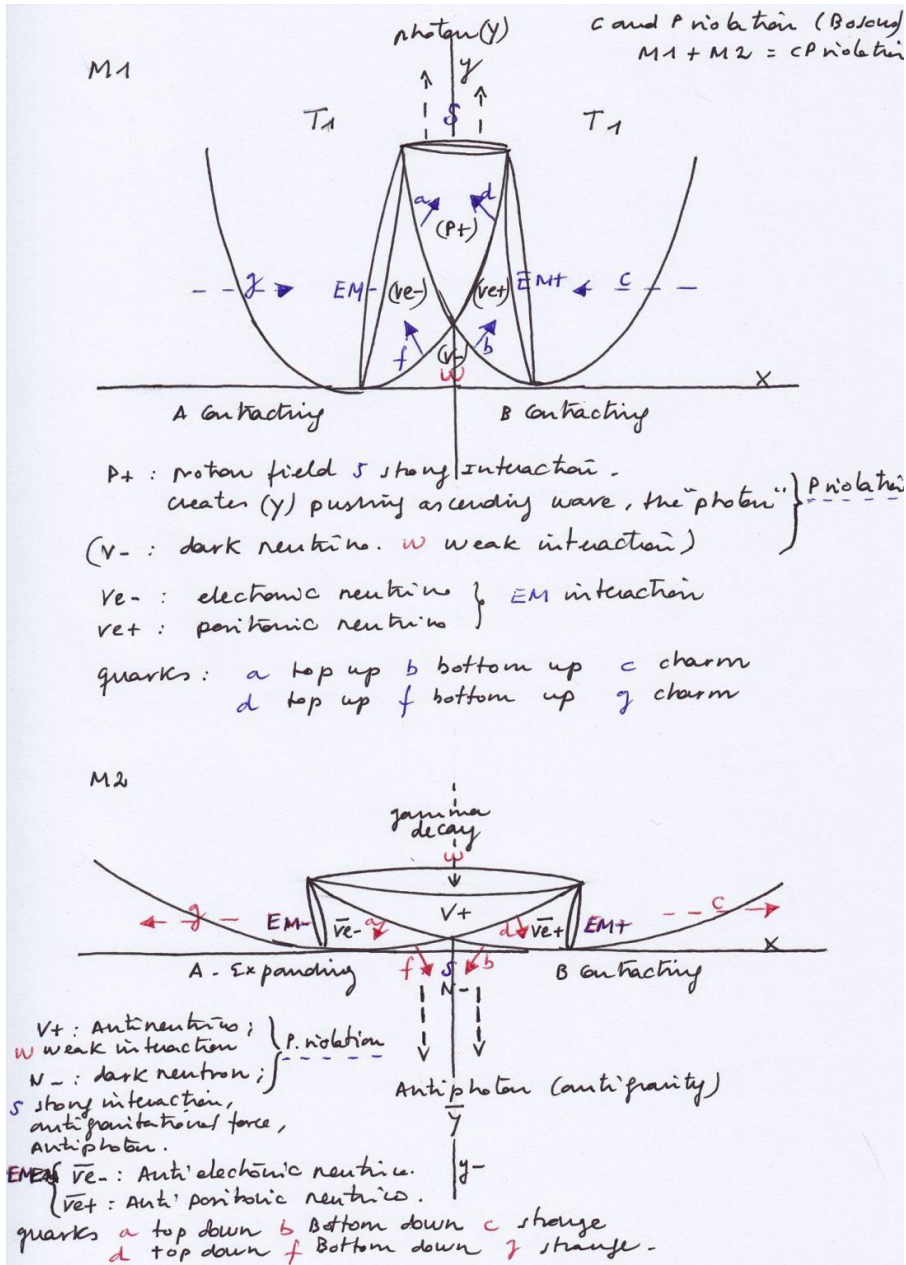 C and P violation (Bosons)
M1 + M2 = CP violation
M1
photon (γ)
y
T1
S
T1
a
d
(P+)
g
EM-
(ve-)
(ve+)
EM+
c
f
(v-)
b
W
X
A Contracting
B Contracting
P+ : Proton field S strong Interaction.
creates (γ) pushing ascending wave, the "photon"
P violation
(v- : dark neutrino. W weak interaction)
ve- : electronic neutrino
ve+ : positonic neutrino
EM interaction
quarks : a top up b bottom up c charm
d top up f bottom up g charm
M2
gamma
decay
W
V+
g
EM-
v̅e-
a
d
v̅e+
EM+
c
X
A - Expanding
f
S
b
B Contracting
N-
V+ : Antineutrino;
W weak interaction
P. violation
N- : dark neutron;
S strong interaction,
antigravitational force,
Antiphoton.
Antiphoton (antigravity)
γ̅
y-
EM
v̅e- : Anti electronic neutrino.
v̅e+ : Anti positonic neutrino.
quarks a top down b Bottom down c strange
d top down f Bottom down g strange.